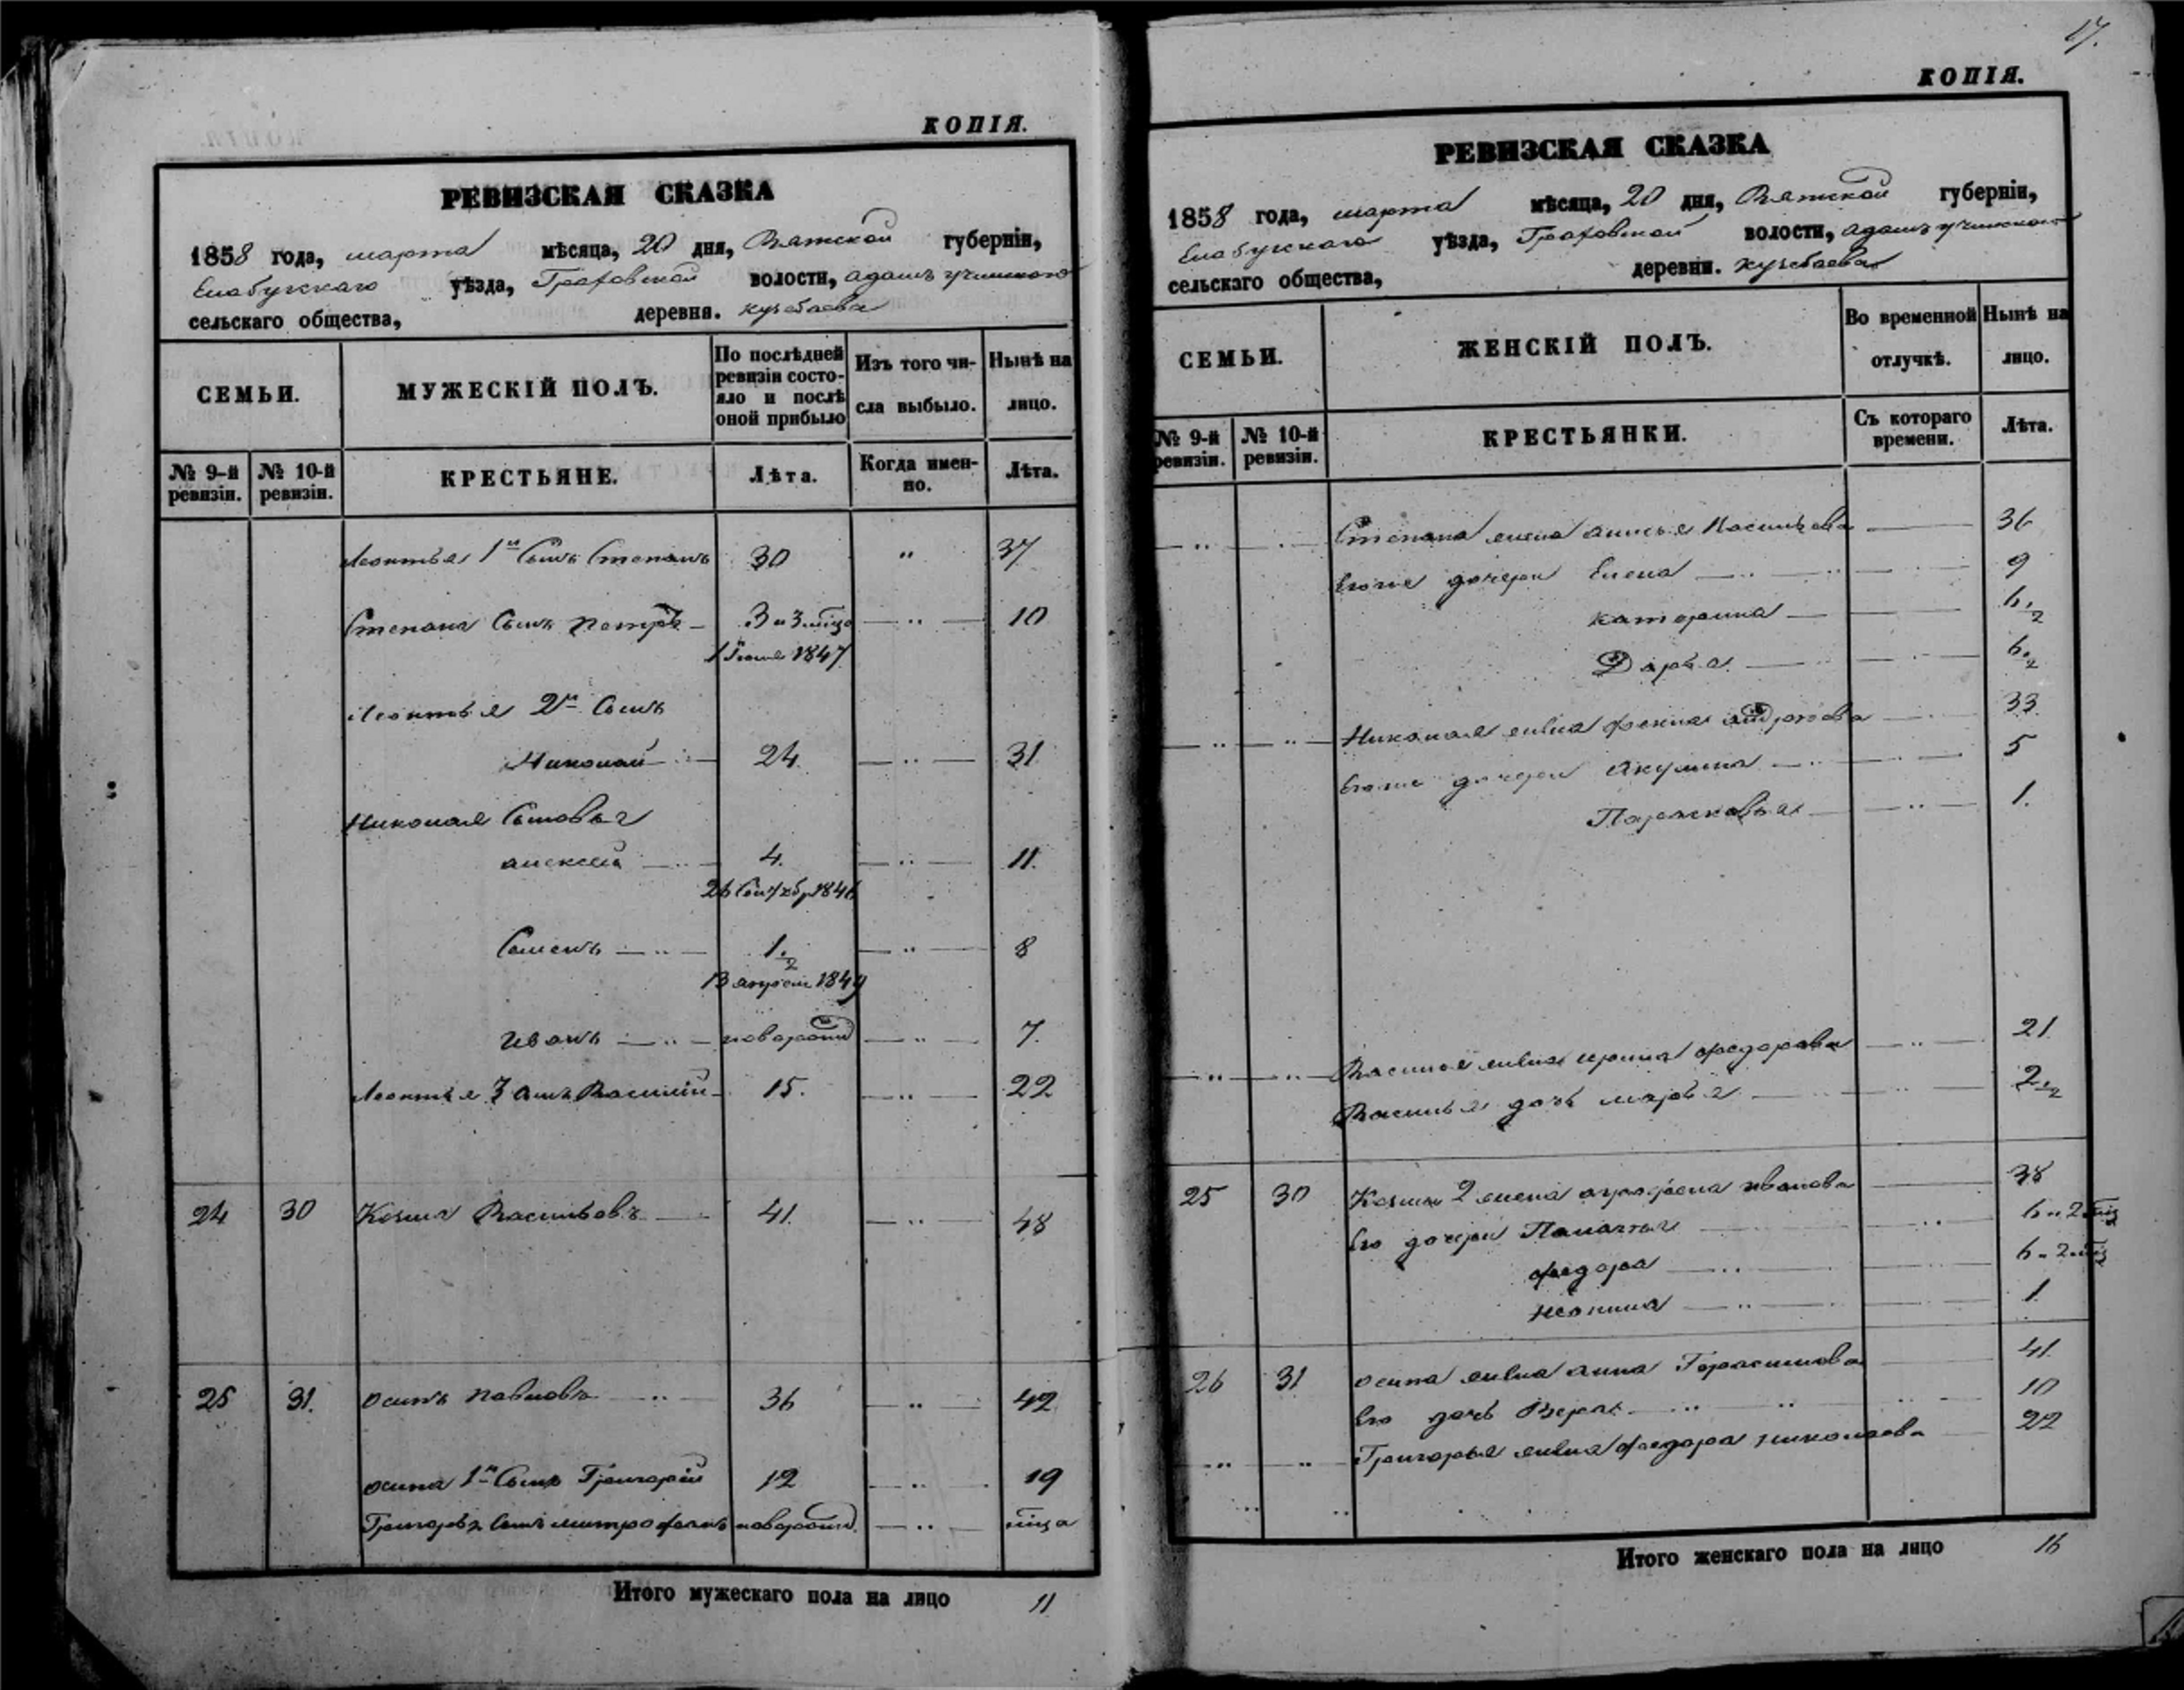 КОПІЯ.
РЕВИЗСКАЯ СКАЗКА
1858 года, марта мѣсяца, 20 дня, Вятской губерніи,
Елабужскаго уѣзда, Граховской волости,
сельскаго общества, деревня.
СЕМЬИ.
МУЖЕСКІЙ ПОЛЪ.
По послѣдней ревизіи состояло и послѣ оной прибыло
Изъ того числа выбыло.
Нынѣ на лицо.
№ 9-й ревизіи.
№ 10-й ревизіи.
КРЕСТЬЯНЕ.
Лѣта.
Когда имен-но.
Лѣта.
Леонтья 1й Сынъ Степанъ 30 " 37
Степана Сынъ Петръ 3 и 3 мѣся 10
1 1847
Леонтья 2й Сынъ
Николай 24 " 31
Николая Сыновья
Алексей 4. " 11.
26 1846
Семенъ 1½ " 8
13 апреля 1849
Иванъ новорожд " 7.
Леонтья 3 Сынъ Василій 15. " 22
24 30 Козма Васильевъ 41. " 48
25 31. Осипъ Павловъ 36 " 42
Осипа 1й Сынъ Григорій 12 " 19
Григорья Сынъ Митрофанъ новорожд. " мѣсца
Итого мужескаго пола на лицо 11
17.
КОПІЯ.
РЕВИЗСКАЯ СКАЗКА
1858 года, марта мѣсяца, 20 дня, Вятской губерніи,
Елабужскаго уѣзда, Граховской волости,
сельскаго общества, деревни.
СЕМЬИ.
ЖЕНСКІЙ ПОЛЪ.
Во временной отлучкѣ.
Нынѣ на лицо.
№ 9-й ревизіи.
№ 10-й ревизіи.
КРЕСТЬЯНКИ.
Съ котораго времени.
Лѣта.
Степана жена Васильева 36
Егоже дочери Елена 9
Катерина 6½
Дарья 6½
Николая жена 33
Егоже дочери Акулина 5
Парасковья 1.
Василья жена Ирина Федорова 21
Василья дочь Марья 2½
25 30 Козмы 2 жена Аграфена Иванова 38
Его дочери 6 и 2 мѣс
Федора 6 и 2 мѣс
1
26 31 Осипа жена Анна Герасимова 41.
Его дочь Вера 10
Григорья жена Федора Николаева 22
Итого женскаго пола на лицо 16